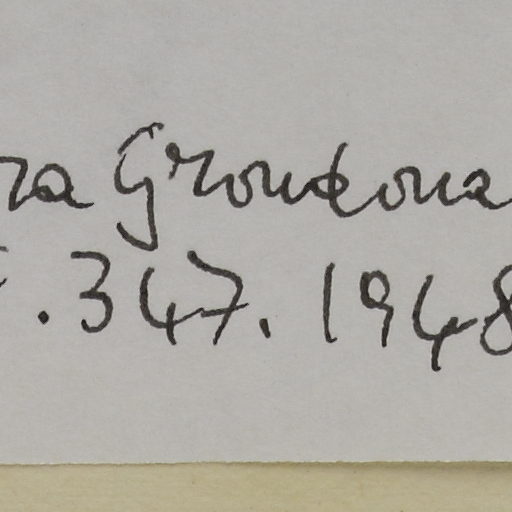 ra Grondona
. 347. 1948